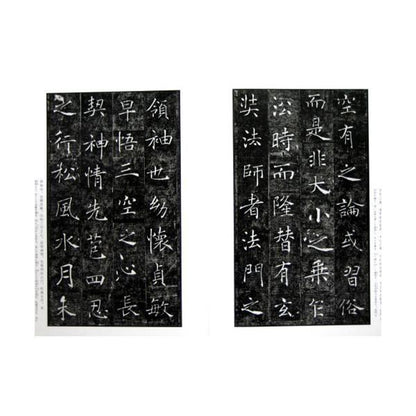 空有之論或習俗
而是非大小之乘乍
㳂時而隆替有玄
奘法師者法門之
領袖也幼懷貞敏
早悟三空之心長
契神情先苞四忍
之行松風水月未